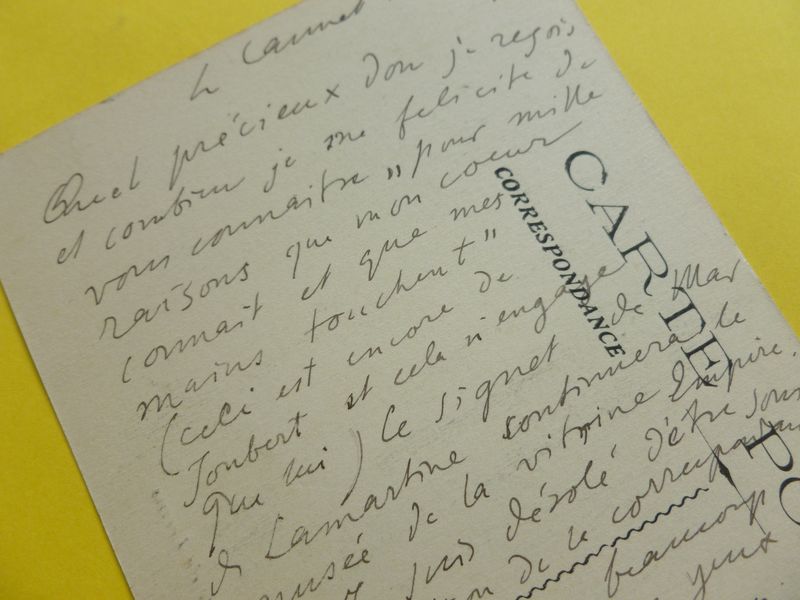 le Cannet
Quel précieux don je reçois
et combien je me felicite de
vous connaitre "pour mille
raisons que mon coeur
connait et que mes
mains touchent"
(ceci est encore de
Joubert et cela n'engage
que lui) le signet de Mar
de Lamartine continuera le
musée de la vitrine Empire.
suis désolé d'être sous
de la correspondan
beaucoup
yeux
CARTE PO
CORRESPONDANCE